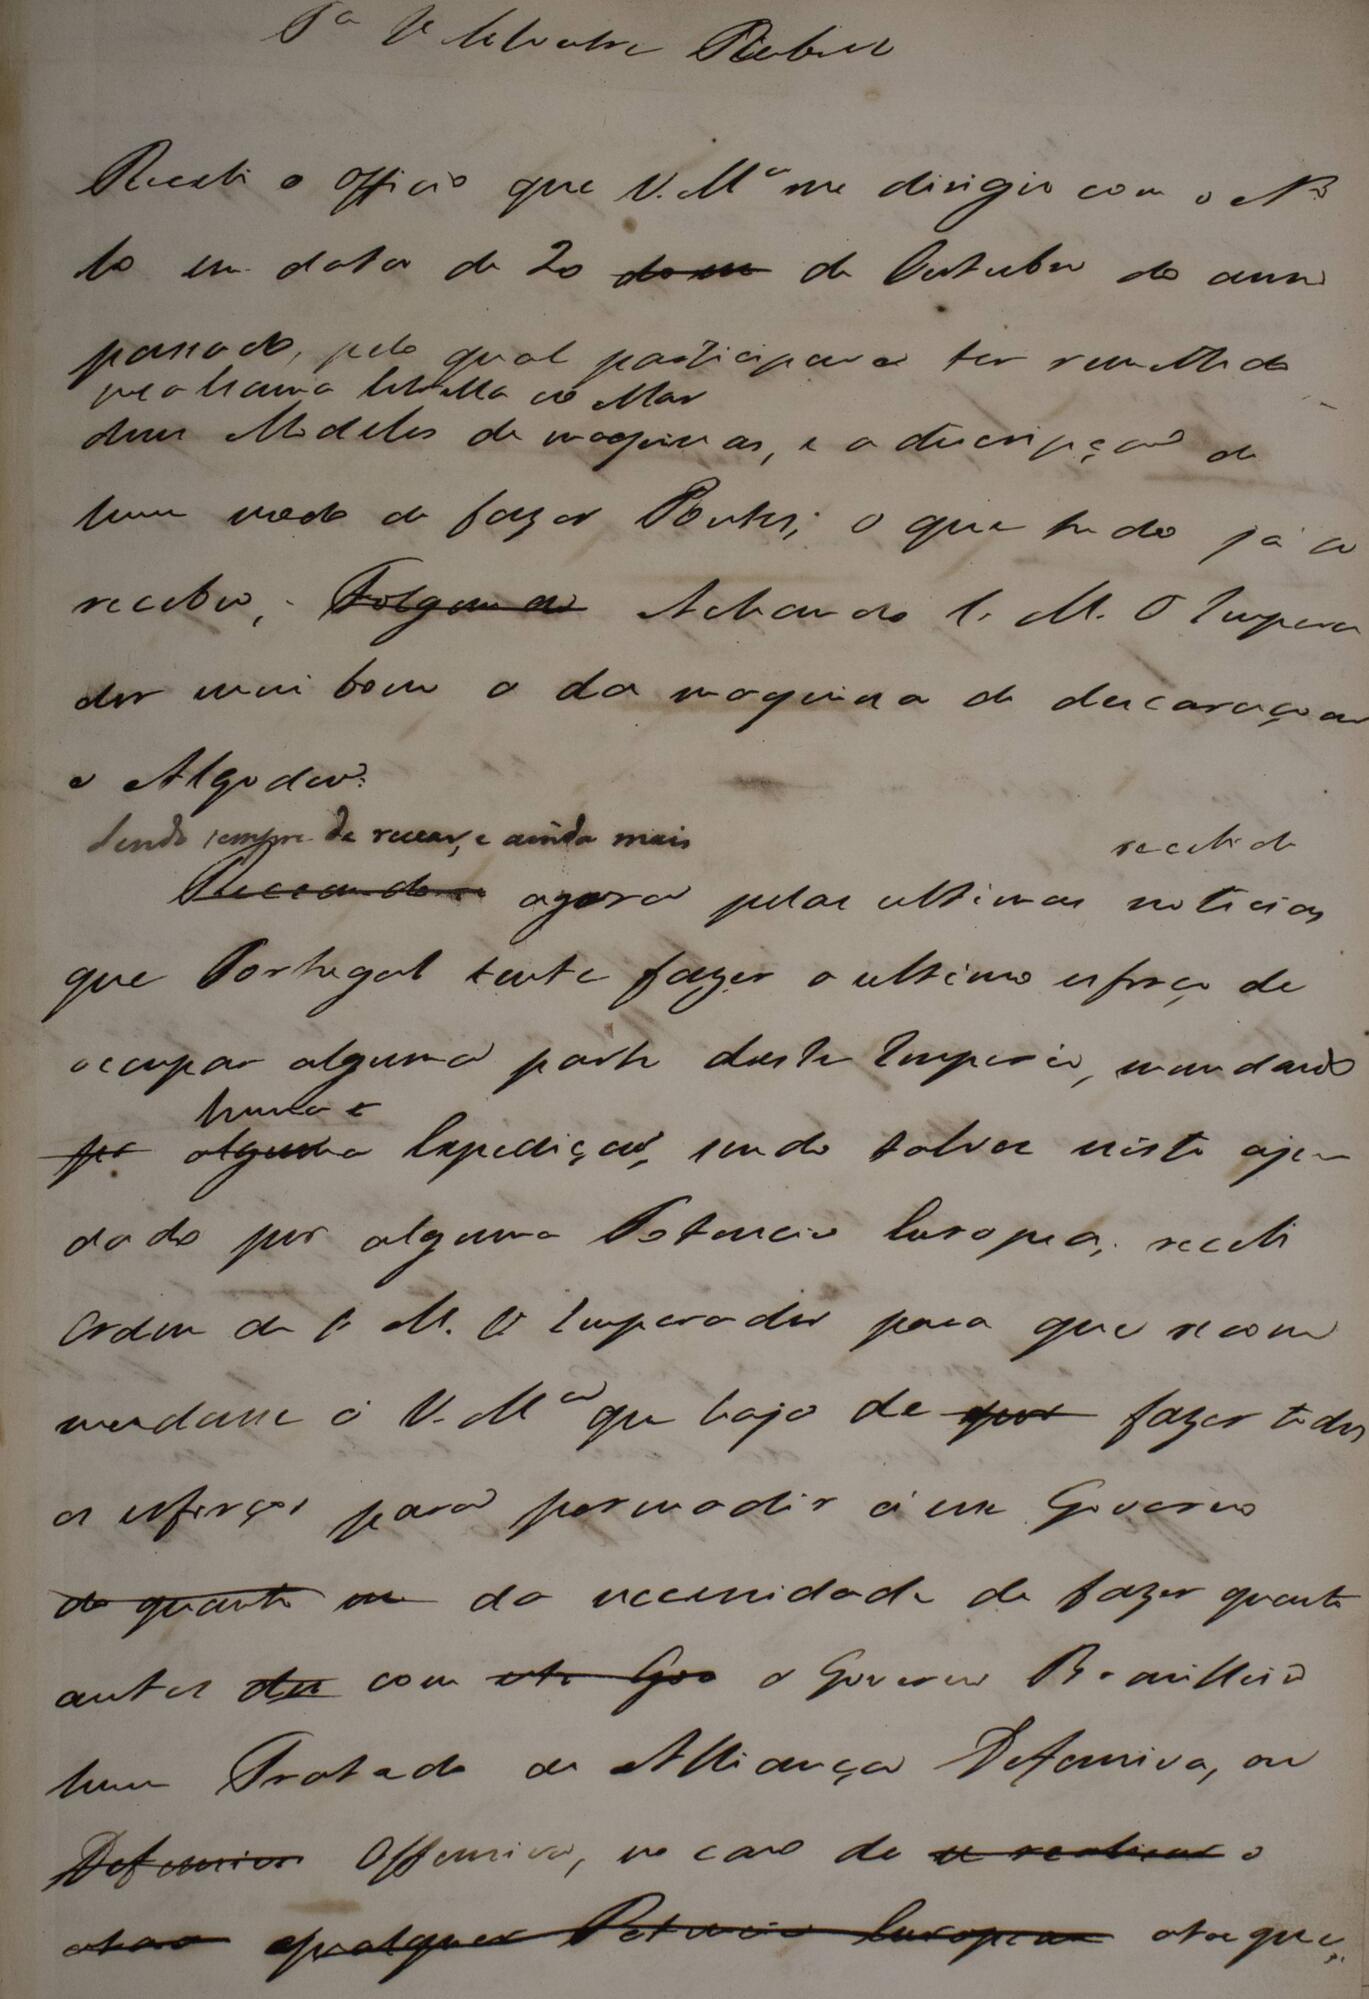 Pª Silvestre Rebello
Recebi o officio que V. Mce me dirigio com o Nº
10 em data de 20 de Outubro do anno
passado, pelo qual participava ter remettido
pela Escuna Estrella do Mar
dous Modelos de maquinas, e a descripção de
hum modo de fazer Pontes; o que tudo já se
recebeo, Folgando Achando S. M. O Impera
dor mui bom o da maquina de descaroçar
o Algodão.
Sendo sempre de recear, e ainda mais
recebidas
Receando agora pelas ultimas noticias
que Portugal tente fazer o ultimo esforço de
occupar alguma parte deste Imperio, mandando
huma
por alguma Expedição, sendo talvez nisto aju
dado por alguma Potencia Europea, recebi
Ordem de S. M. O Imperador para que recom
mendasse á V. Mce que haja de fazer todos
os esforços para persuadir á esse Governo
do quanto da necessidade de fazer quanto
antes com este Gov o Governo Brasilleiro
hum Tratado de Alliança Defensiva, ou
Defensiva Offensiva, no caso de se realizar o
qualquer Potencia Europea ataque,